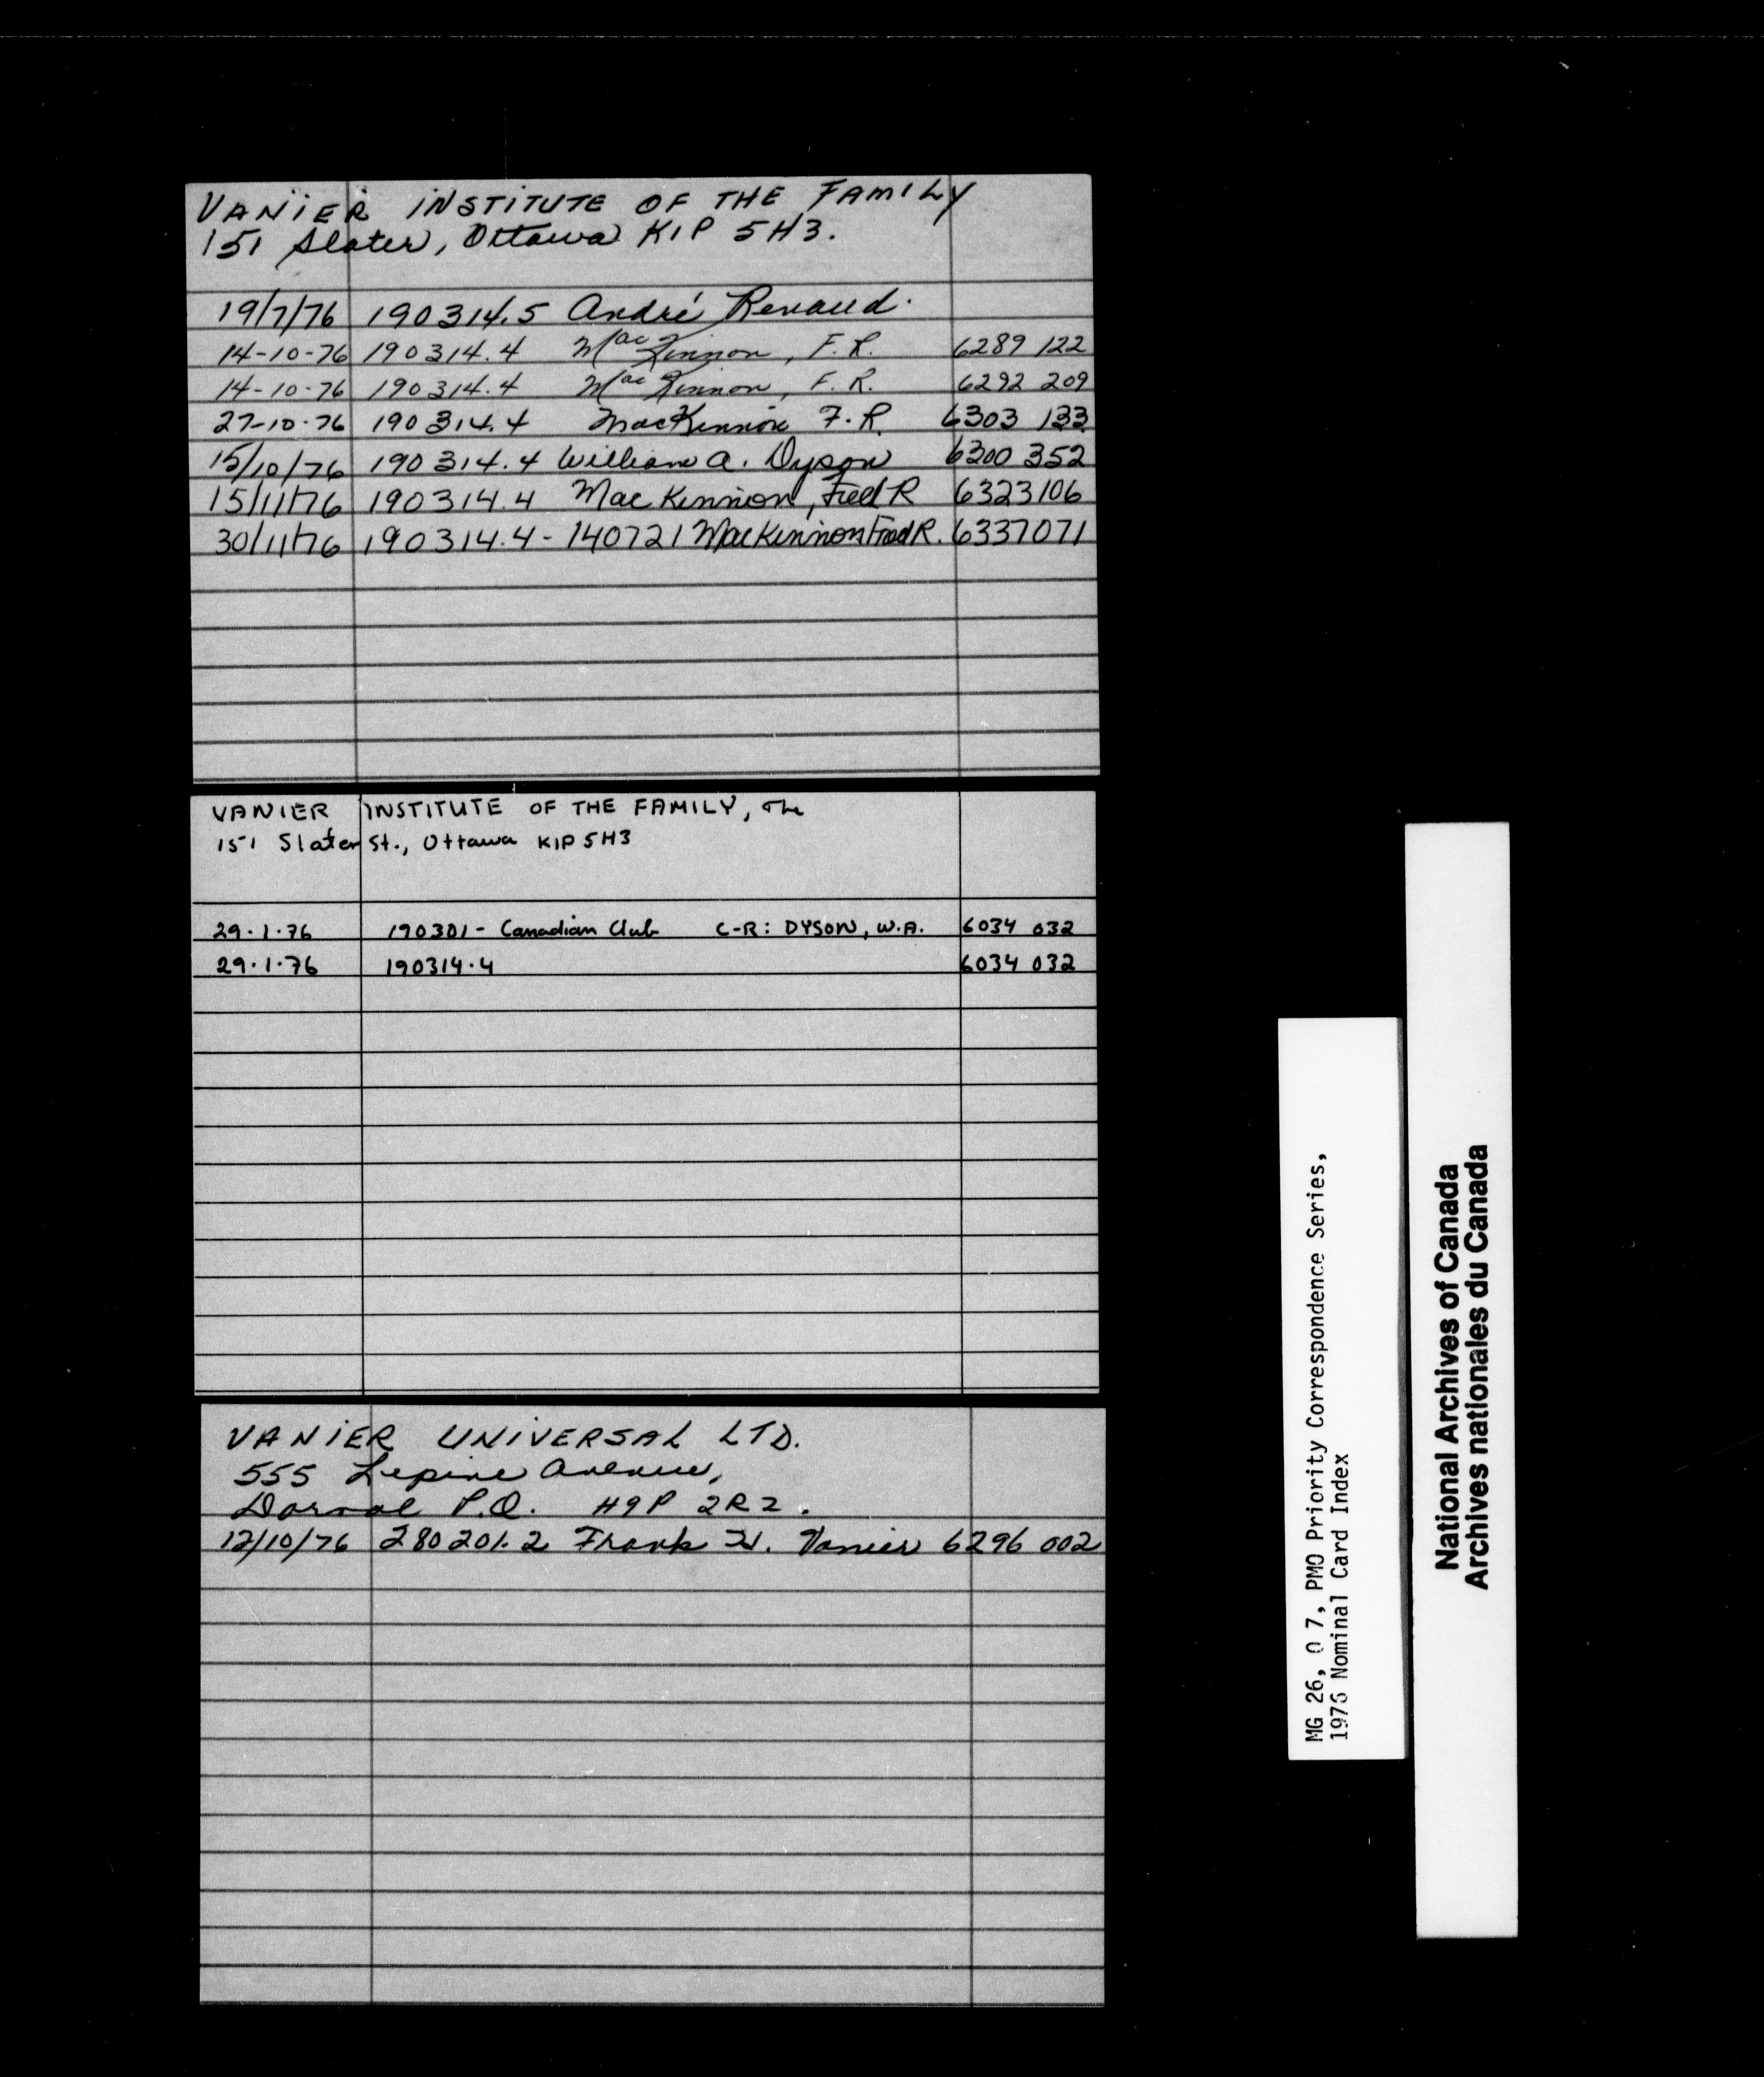 VANiER iNSTiTUTE OF THE FAMILY
151 Slater, Ottawa K1P 5H3.
19/7/76 190314.5 André Renaud.
14-10-76 190314.4 MacKinnon, F.R. 6289 122
14-10-76 190314.4 MacKinnon, F.R. 6292 209
27-10-76 190314.4 MacKinnon F.R. 6303 133
15/10/76 190314.4 William A. Dyson 6300 352
15/11/76 190314.4 MacKinnon, Fred R 6323106
30/11/76 190314.4 - 140721 MacKinnon Fred R. 6337071
VANIER INSTITUTE OF THE FAMILY, The
151 Slater St., Ottawa K1P 5H3
29.1.76 190301 - Canadian Club C-R: DYSON, W.A. 6034 032
29.1.76 190314.4 6034 032
VANiER UNiVERSAL LTD.
555 Lepine Avenue,
Dorval P.Q. H9P 2R2.
12/10/76 280201.2 Frank H. Vanier 6296 002
MG 26, O 7, PMO Priority Correspondence Series,
1976 Nominal Card Index
National Archives of Canada
Archives nationales du Canada